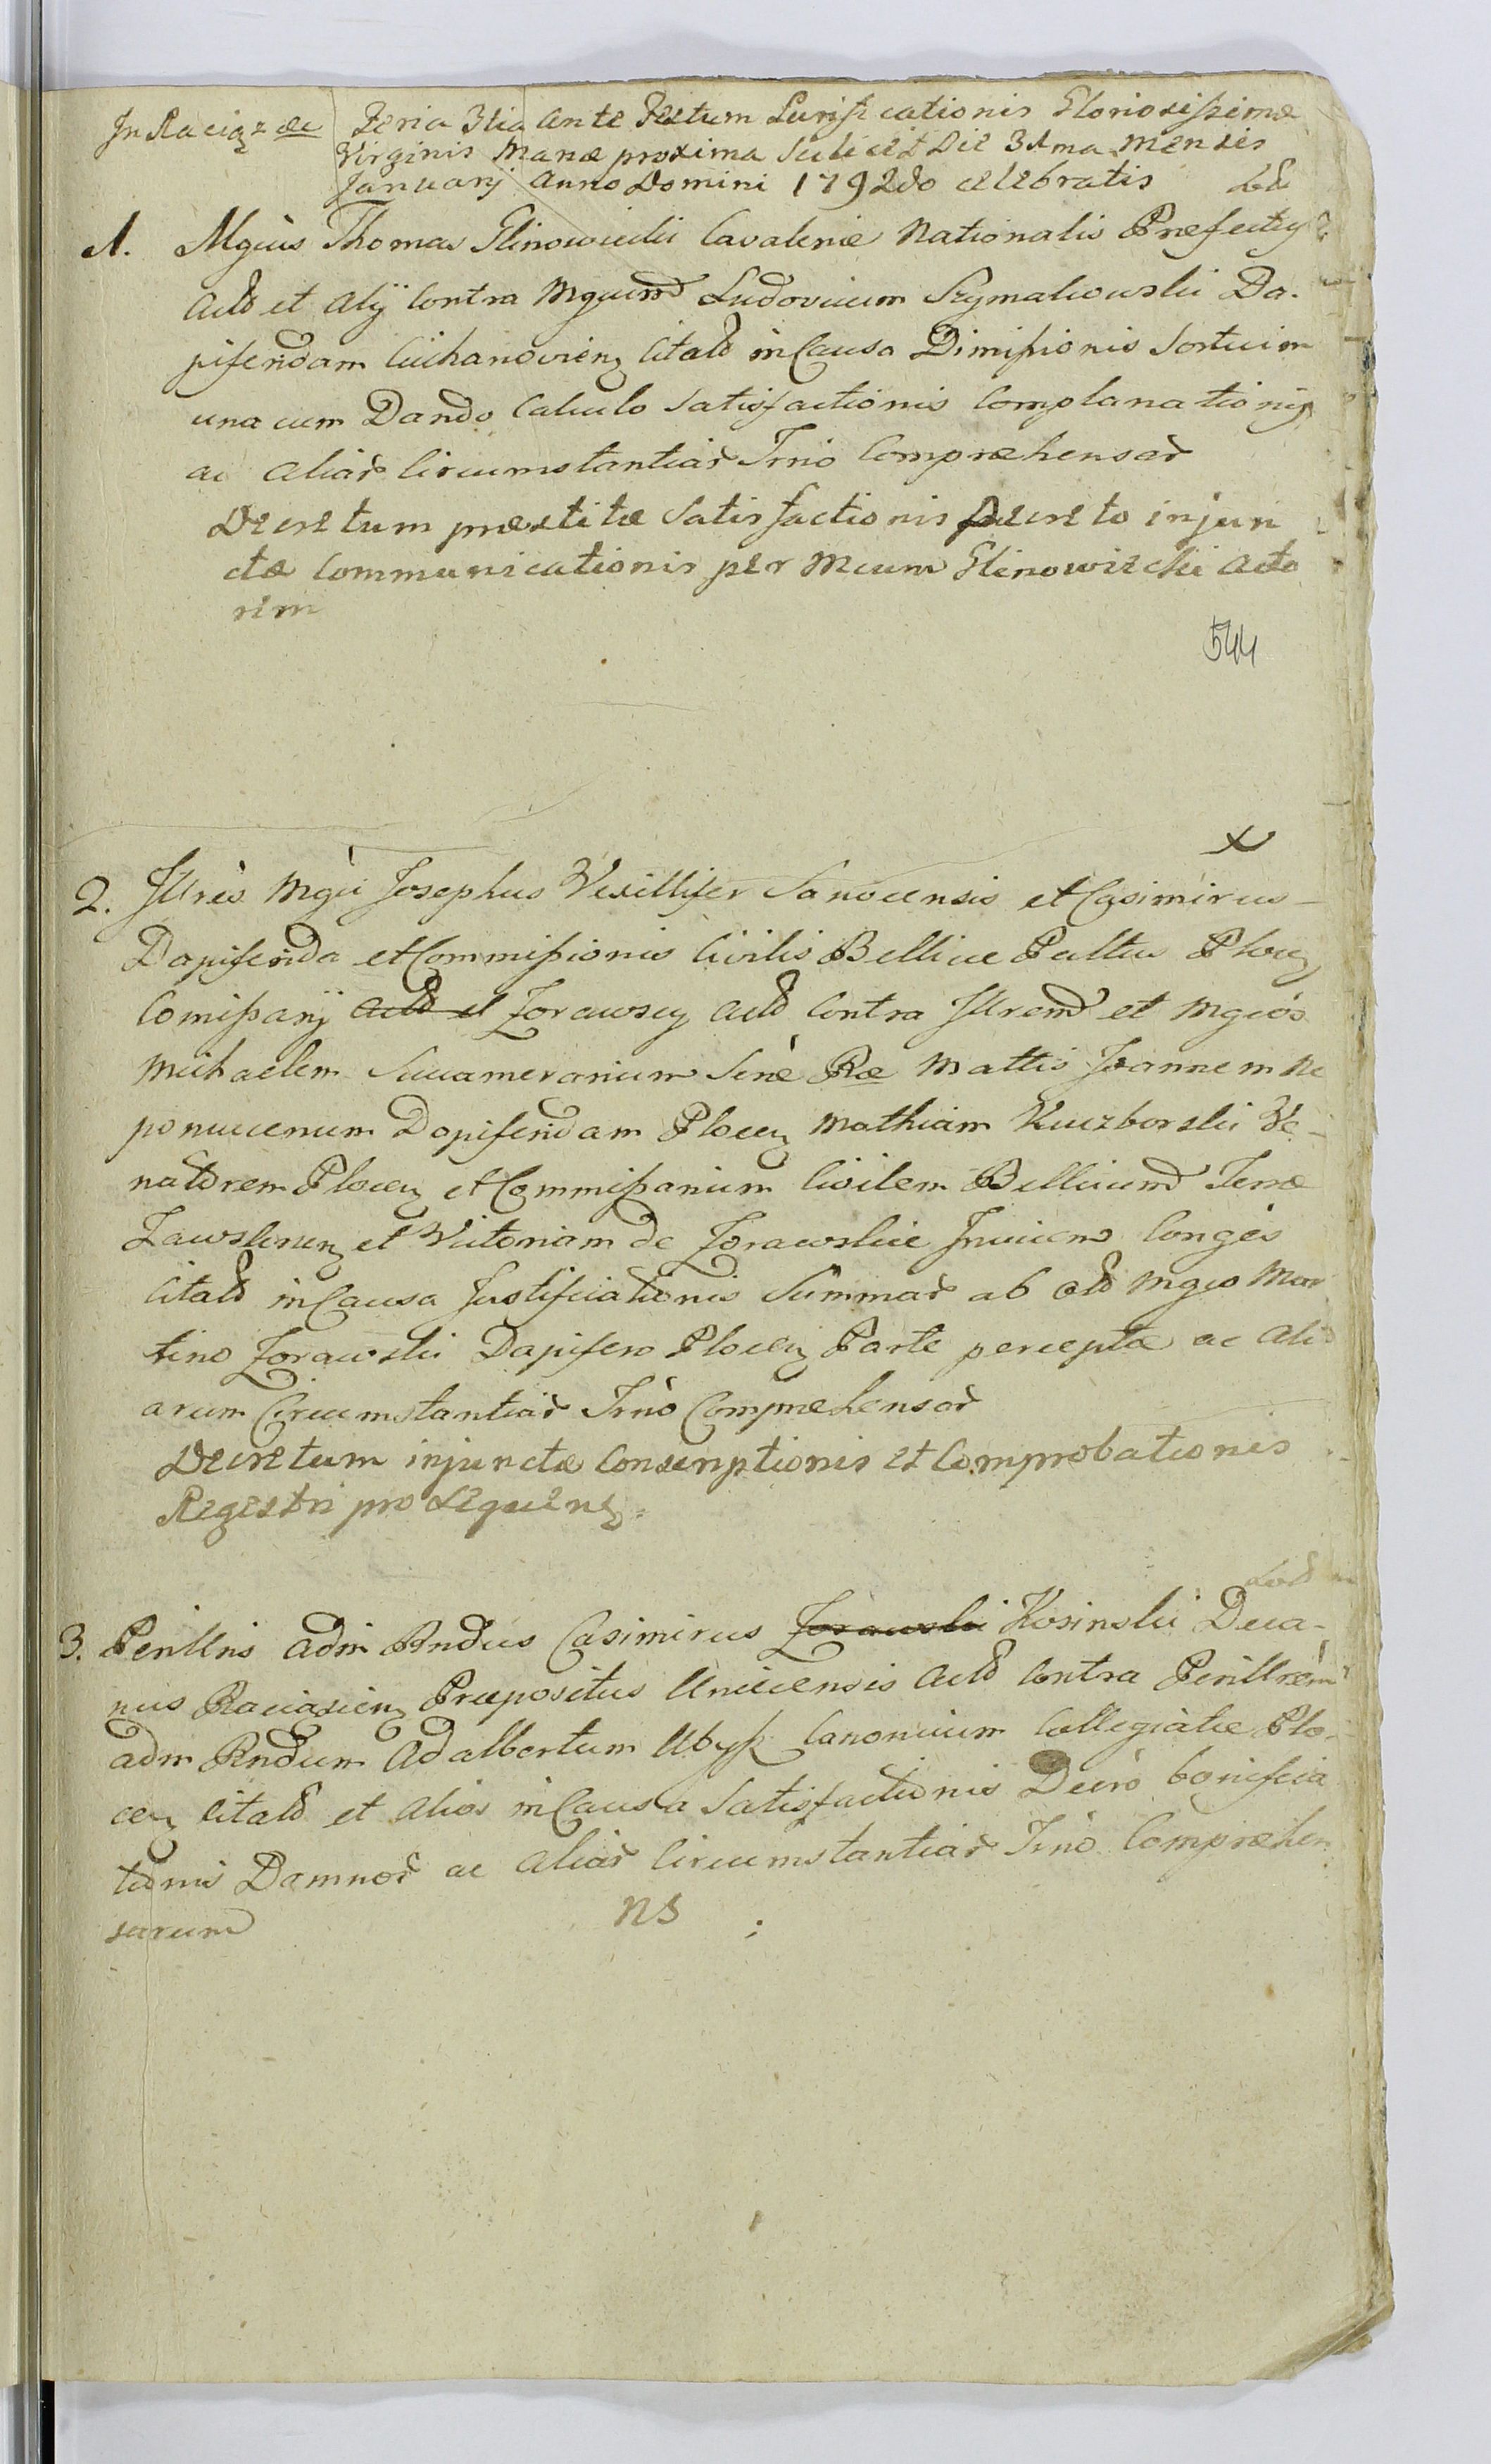 In Raciąz ac Feria 3tia ante Festum Purificationis Gloriosissimæ
Virginis Mariæ proxima scilicet Die 31ma Mensis
Januarij Anno Domini 1792do celebratis
1. Mgcus Thomas Glinowiecki Cavaleriæ Nationalis Præfectus
Actō et Alij Contra Mgcum Ludovicum Szymakowski Da-
pifendam Ciechanovienȝ Citatō in Causa Dimissionis Sortium
una cum Dando Calculo Satisfactionis Complanationis
ac aliar̃ Circumstantiar̃ Trno Compræhensar̃
Decretum præstitæ Satisfactionis Decreto injun
ctæ Communicationis per Mcum Glinowiecki Acto
rem
544
2. Jllres Mgci Josephus Vexillifer Sanocensis et Casimirus
Dapifenda et Commissionis Civilis Bellicæ Palltus Plocenȝ
Comissarij Actō et Zorawscy Actō Contra Jllrem et Mgcos
Michaelem Succamerarium Senē Ræ Mattis Joannem Ne
pomucenum Dapifendam Plocenȝ Mathiam Kuczborski Ve-
natorem Plocenȝ et Commissarium Civilem Bellicum Terræ
Zawskrnenȝ et Victoriam de Zorawskie Invicem Conges
Citatō in Causa Justificationis Summar̃ ab olō Mgco Mar
tino Zorawski Dapifero Plocenȝ Parte perceptæ ac Ali
arum Circumstantiar̃ Trno Compræhensar̃
Decretum injunctæ Conscriptionis et Comprobationis
Registri pro Sequenȝ
3. Perillris adm Rndus Casimirus Zorawski Kosinski Deca-
nus Raciązienȝ Præpositus Uniecensis Actō Contra Perillrem
adm Rndum Adalbertum Ubysz Canonicum Collegiatæ Plo-
cenȝ Citatō et Alios in Causa Satisfactionis Decro bonifica
tionis Damnor̃ ac aliar̃ Circumstantiar̃ Trno Compræhen
sarum NS